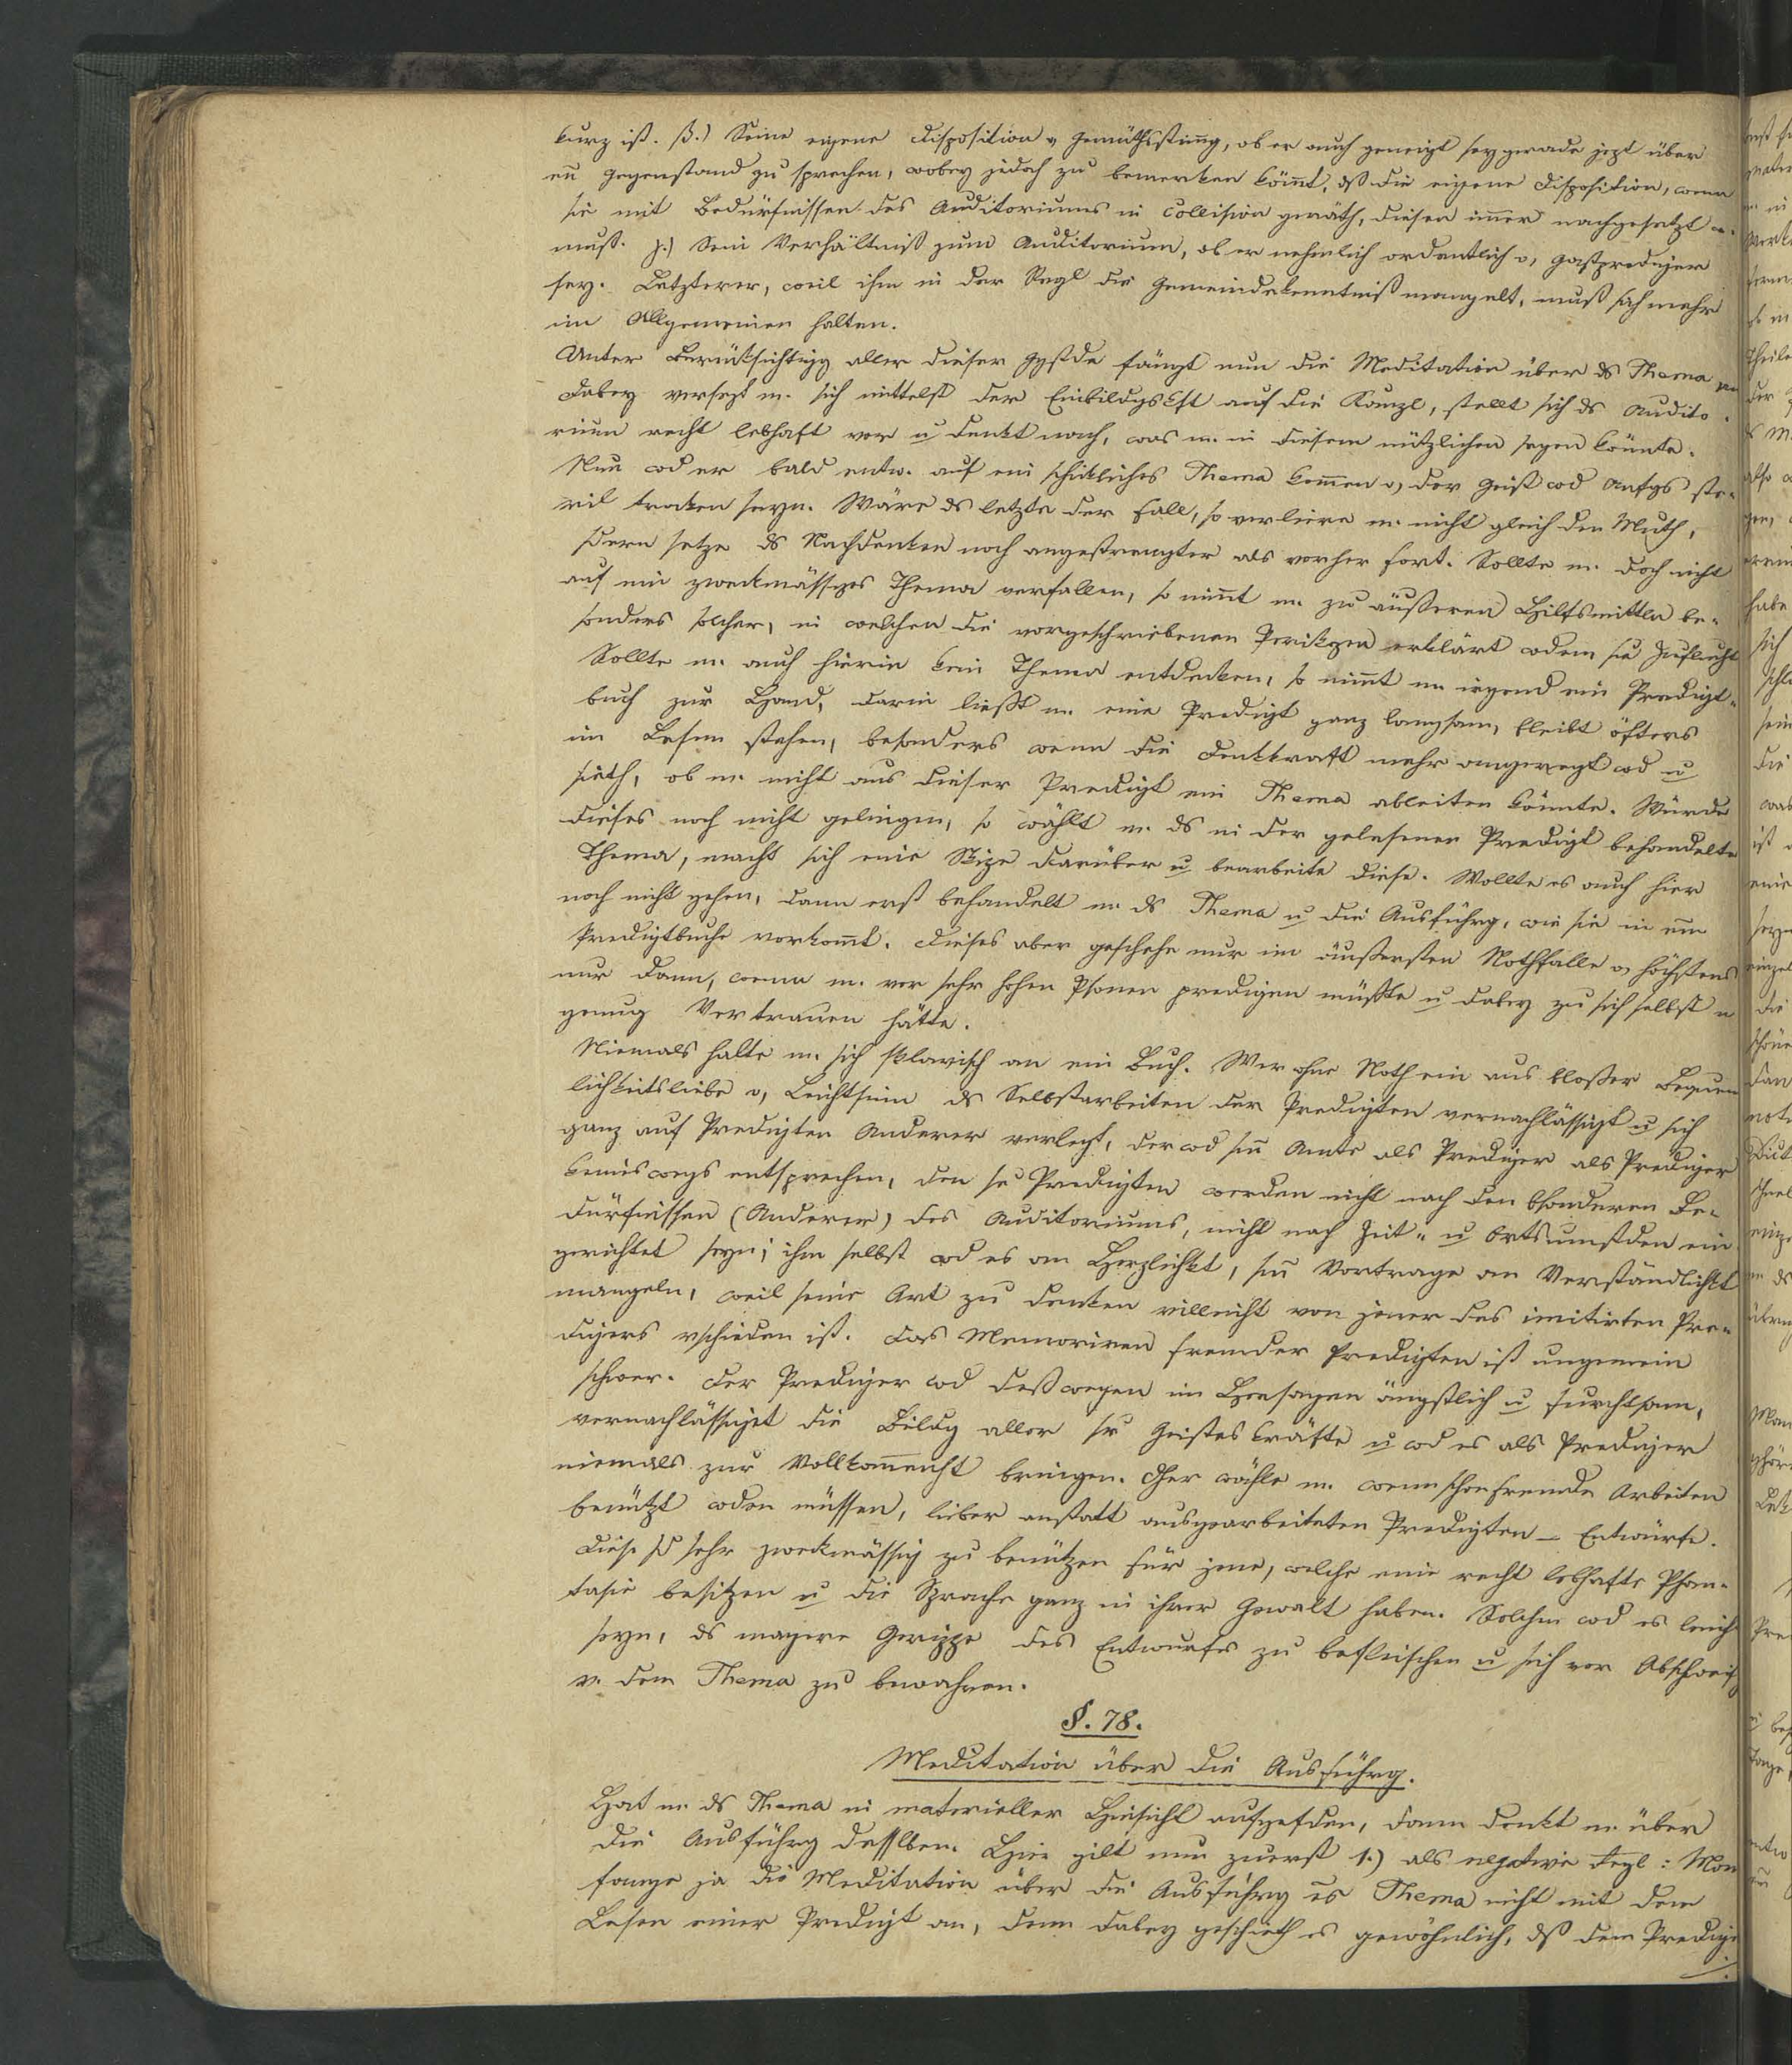 kurz ist. β.) Seine eigene Disposition u Gemüthsstimg, ob er auch geneigt sey gerade jezt über
en̄ Gegenstand zu sprechen, wobey jedoch zu bemerken kömmt, dß die eigene Disposition, wenn
sie mit Bedürfnissen des Auditoriums in Collision geräth, diesen im̄er nachgesetzt w.
muß. γ.) Sein Verhältniß zum Auditorium, ob er nehmlich ordentlich o, Gastprediger
sey. Letzterer, weil ihm in der Regl die Gemeindekenntniß mangelt, muß sich mehr
im Allgemeinen halten.
Unter Berüksichtigg aller dieser Ggstde fängt nun die Meditation über ds Thema an
Dabey versezt m. sich mittelst der Einbildgskft auf die Kanzl, stellt sich ds Audito-
rium recht lebhaft vor u denkt nach, was m. in diesem nützlichen sagen könnte.
Nun wd er bald entw. auf ein schikliches Thema kom̄en o, der Geist wd Anfgs ste-
ril troken seyn. Wäre ds letzte der Fall, so verliere m. nicht gleich den Muth,
sdern setze ds Nachdenken noch angestrengter als vorher fort. Sollte m. doch nicht
auf ein zweckmässiges Thema verfallen, so nim̄t m. zu äußeren Hilfsmittln be-
sonders solcher, in welchen die vorgeschriebenen Perikpen erklärt wden se Zuflucht
Sollte m. auch hierin kein Thema entdeken, so nim̄t m. irgend ein Predigt-
buch zur Hand, darin ließt m. eine Predigt ganz langsam, bleibt öfters
im Lesen stehen, besonders wenn die Denkkraft mehr angeregt wd u
sieth, ob m. nicht aus dieser Predigt ein Thema ableiten könnte. Würde
dieses noch nicht gelingen, so wählt m. ds in der gelesenen Predigt behandelte
Thema, macht sich eine Skize darüber u bearbeite diese. Wollte es auch hier
noch nicht gehen, dann erst behandelt m. ds Thema u die Ausführg, wie sie in em̄
Predigtbuche vorkom̄t. Dieses aber geschehe nur im äußersten Nothfalle o, höchstens
nur dann, wenn m. vor sehr hohen Psonen predigen müßte u dabey zu sich selbst n
genug Vertrauen hätte.
Niemals halte m. sich sklavisch an ein Buch. Wer ohne Noth ein aus bloßer Bequem
lichkeitsliebe o, Leichtsinn ds Selbstarbeiten der Predigten vernachlässigt u sich
ganz auf Predigten Anderer verlegt, der wd sm̄ Amte als Prediger als Prediger
keineswegs entsprechen, den se Predigten werden nicht nach den bsonderen Be-
dürfnissen (Anderer) des Auditoriums, nicht nach Zeit- u Ortsumstden ein
gerichtet seyn; ihm selbst wd es an Herzlichkt, sm̄ Vortrage an Verständlichkt
mangeln, weil seine Art zu denken villeicht von jener des imitirten Pre-
digers vschieden ist. Das Memoriren fremder Predigten ist ungemein
schwer. Der Prediger wd deßwegen im Hersagen ängstlich u furchtsam,
vernachlässiget die Bildg aller sr Geisteskräfte u wd es als Prediger
niemals zur Vollkom̄enht bringen. Eher wähle m. wenn schon fremde Arbeiten
benützt wden müssen, lieber anstatt ausgearbeiteten Predigten – Entwürfe.
Diese sd sehr zweckmässig zu benützen für jene, welche eine recht lebhafte Phan-
tasie besitzen u die Sprache ganz in ihrer Gewalt haben. Solchen wd es leicht
seyn, ds magere Gerippe des Entwurfes zu befleischen u sich vor Abschweifg
v. dem Thema zu bewahren.
§. 78.
Meditation über die Ausführg.
Hat m. ds Thema in materieller Hinsicht aufgefden, dann denkt m. über
die Ausführg desslben. Hier gilt nun zuerst 1.) als negative Regl: Man
fange ja die Meditation über die Ausführg es Thema nicht mit dem
Lesen einer Predigt an, denn dabey geschieth es gewöhnlich, dß dem Predige